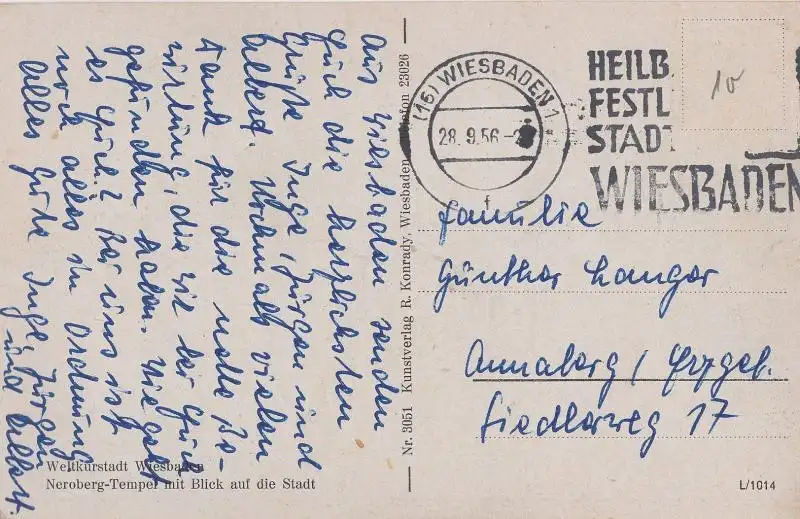 Aus Wiesbaden senden
Euch die herzlichsten
Grüße Inge, Jürgen und
Albert. Nochmals vielen
Dank für die nette Be-
wirtung, die wir bei Euch
gefunden haben. Wie geht
es Euch? Bei uns ist
noch alles in Ordnung
Alles Gute Inge, Jürgen
und Albert.
Weltkurstadt Wiesbaden
Neroberg-Tempel mit Blick auf die Stadt
Nr. 3051 Kunstverlag R. Konrady, Wiesbaden, Telefon 23026
(16) WIESBADEN 1
28. 9. 56
f
HEILB
FESTL
STADT
WIESBADEN
10
Familie
Günther Langer
Annaberg / Erzgeb.
Siedlerweg 17
L/1014